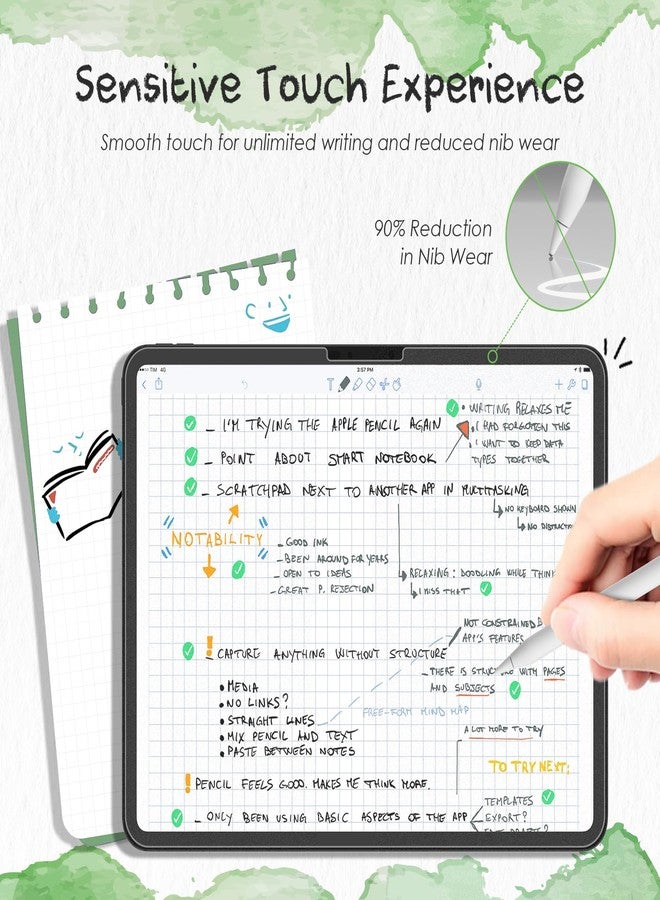 Sensitive Touch Experience
Smooth touch for unlimited writing and reduced nib wear
90% Reduction
in Nib Wear
TIM 4G
3:57 PM
_ I'M TRYING THE APPLE PENCIL AGAIN
• WRITING RELAXES ME
• I HAD FORGOTTEN THIS
• I WANT TO KEEP DATA
TYPES TOGETHER
_ POINT ABOUT SMART NOTEBOOK
_ SCRATCHPAD NEXT TO ANOTHER APP IN MULTITASKING
NO KEYBOARD SHOWN
NO DISTRACTIO
NOTABILITY
- GOOD INK
- BEEN AROUND FOR YEARS
- OPEN TO IDEAS
- GREAT P. REJECTION
RELAXING: DOODLING WHILE THIN
I MISS THAT
NOT CONSTRAINED
APP'S FEATURES
! CAPTURE ANYTHING WITHOUT STRUCTURE
- THERE IS WITH PAGES
AND SUBJECTS
• MEDIA
• NO LINKS?
• STRAIGHT LINES
• MIX PENCIL AND TEXT
• PASTE BETWEEN NOTES
FREE-FORM MIND MAP
A LOT MORE TO TRY
TO TRY NEXT:
! PENCIL FEELS GOOD. MAKES ME THINK MORE.
_ ONLY BEEN USING BASIC ASPECTS OF THE APP
TEMPLATES
EXPORT?